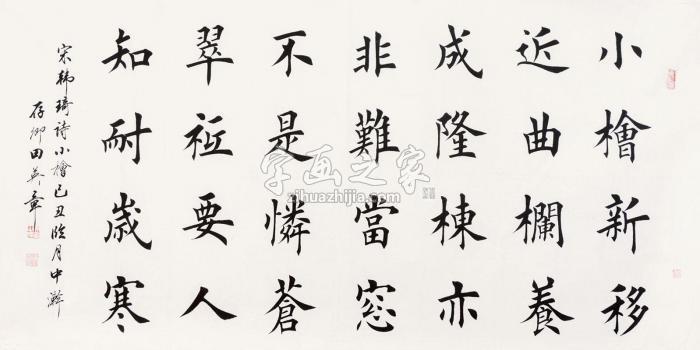 小檜新移
近曲欄養
成隆棟亦
非難當窓
不是憐蒼
翠秖要人
知耐歲寒
宋韓琦詩小檜己丑臘月中澣
存卿田英章
字画之家
zihuazhijia.com